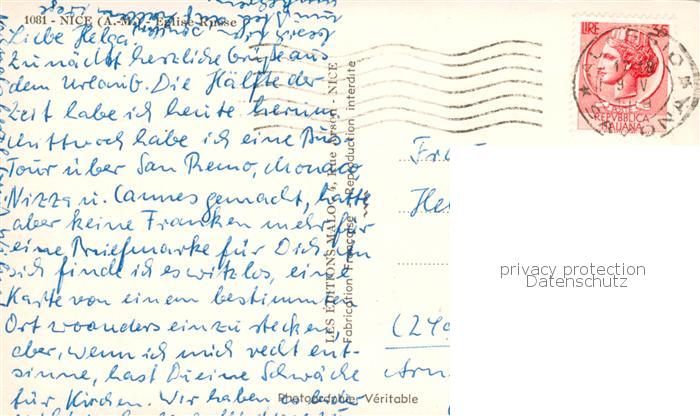 1081 - NICE (A.-M.) - Eglise Russe
Liebe Helga,
zunächst herzliche Grüße aus
dem Urlaub. Die Hälfte der
Zeit habe ich heute herum.
Mittwoch habe ich eine Bus-
Tour über San Remo, Monaco
Nizza u. Cannes gemacht, hatte
aber keine Franken mehr für
eine Briefmarke für Dich. An
sich finde ich es witzlos, eine
Karte von einem bestimmten
Ort woanders einzustecken
aber, wenn ich mich recht ent-
sinne, hast Du eine Schwäche
für Kirchen. Wir haben
LES ÉDITIONS MALOT, 4, Rue - NICE
Fabrication Française - Reproduction interdite
Photographie Véritable
LIRE 35
POSTE
REPVBBLICA
ITALIANA
Fr
He
(24
Arn
privacy protection
Datenschutz